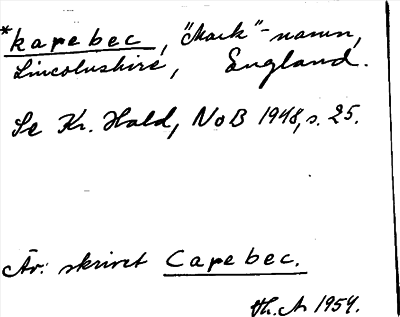 *kapebec, "Mark"-namn,
Lincolnshire, England.
Se Kr. Hald, NoB 1948, s. 25.
Äv: skrivet Capebec.
Th. A 1954.